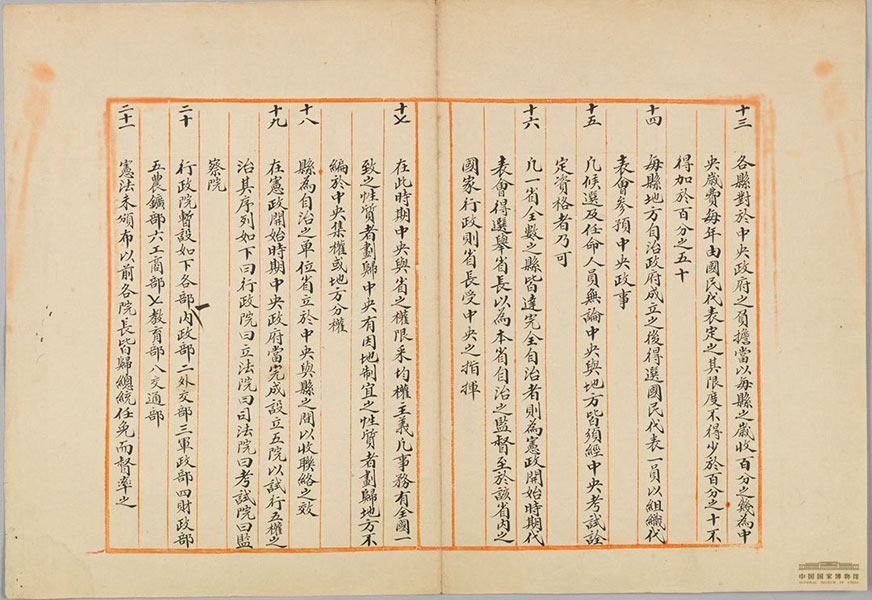 十三 各縣對於中央政府之負擔當以每縣之歲收百分之幾為中
央歲費每年由國民代表定之其限度不得少於百分之十不
得加於百分之五十
十四 每縣地方自治政府成立之後得選國民代表一員以組織代
表會參預中央政事
十五 凡候選及任命人員無論中央與地方皆須經中央考試詮
定資格者乃可
十六 凡一省全數之縣皆達完全自治者則為憲政開始時期代
表會得選舉省長以為本省自治之監督至於該省內之
國家行政則省長受中央之指揮
十七 在此時期中央與省之權限釆均權主義凡事務有全國一
致之性質者劃歸中央有因地制宜之性質者劃歸地方不
編於中央集權或地方分權
十八 縣為自治之單位省立於中央與縣之間以收聯絡之效
十九 在憲政開始時期中央政府當完成設立五院以試行五權之
治其序列如下曰行政院曰立法院曰司法院曰考試院曰監
察院
二十 行政院暫設如下各部一內政部二外交部三軍政部四財政部
五農鑛部六工商部七教育部八交通部
二十一 憲法未頒布以前各院長皆歸總統任免而督率之
中国国家博物馆
NATIONAL MUSEUM OF CHINA